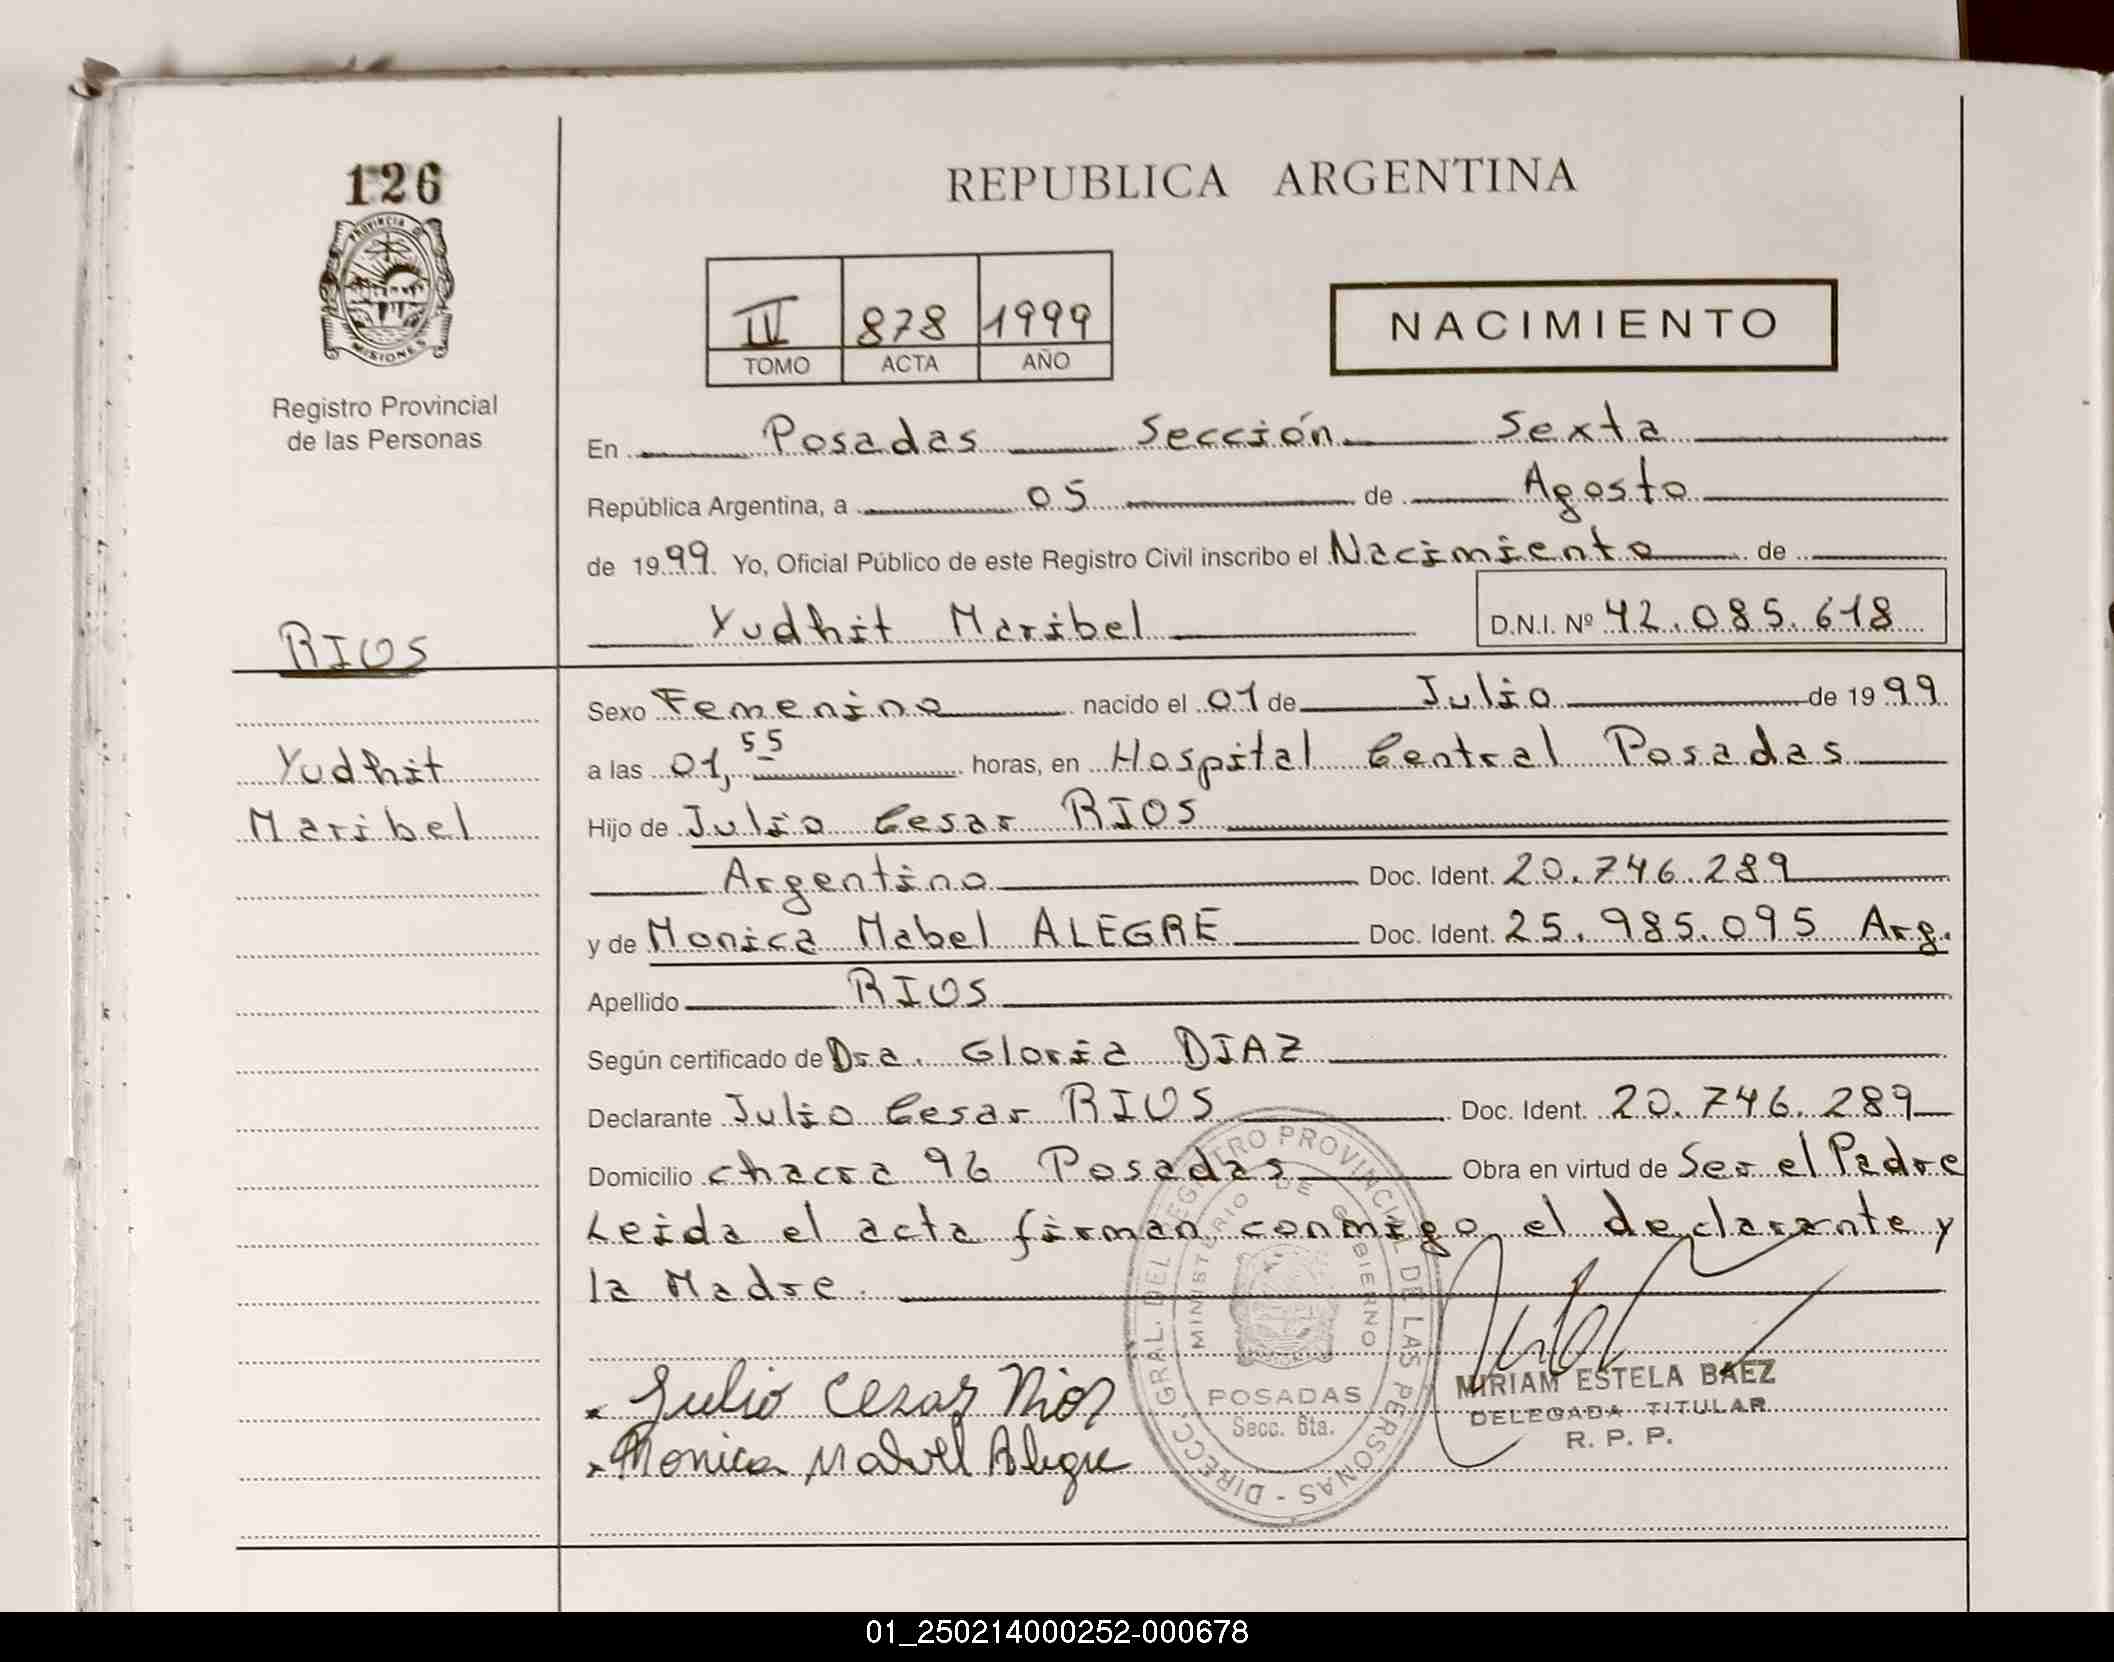 126
PROVINCIA D
MISIONES
Registro Provincial
de las Personas
REPUBLICA ARGENTINA
IV 878 1999
TOMO ACTA AÑO
NACIMIENTO
En Posadas Sección Sexta
República Argentina, a 05 de Agosto
de 1999 Yo, Oficial Público de este Registro Civil inscribo el Nacimiento de
Yudhit Maribel D.N.I. Nº 42.085.618
RIOS
Yudhit
Maribel
Sexo Femenino nacido el 01 de Julio de 1999
a las 01,55 horas, en Hospital Central Posadas
Hijo de Julio Cesar RIOS
Argentino Doc. Ident. 20.746.289
y de Monica Mabel ALEGRE Doc. Ident. 25.985.095 Arg.
Apellido RIOS
Según certificado de Dra. Gloria DIAZ
Declarante Julio Cesar RIOS Doc. Ident. 20.746.289
Domicilio chacra 96 Posadas Obra en virtud de Ser el Padre
Leida el acta firman conmigo el declarante y
la Madre.
Julio Cesar Rios
Monica Mabel Alegre
DIRECC. GRAL. DEL REGISTRO PROVINCIAL DE LAS PERSONAS -
MINISTERIO DE GOBIERNO
POSADAS
Secc. 6ta.
MIRIAM ESTELA BAEZ
DELEGADA TITULAR
R. P. P.
01_250214000252-000678